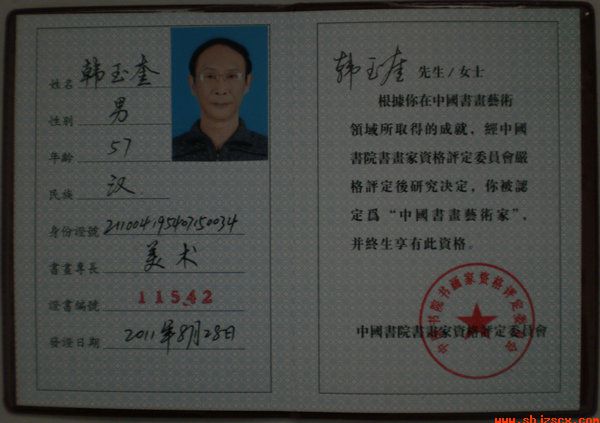 姓名 韩玉奎
性别 男
年龄 57
民族 汉
身份證號 211004195407150034
書畫專長 美术
證書編號 11542
發證日期 2011年8月28日
韩玉奎 先生/女士
根據你在中國書畫藝術
領域所取得的成就，經中國
書院書畫家資格評定委員會嚴
格評定後研究决定，你被認
定爲“中國書畫藝術家”，
并終生享有此資格。
中國書院書畫家資格評定委員會
中国书院书画家资格评定委员会
www.shjzscx.com